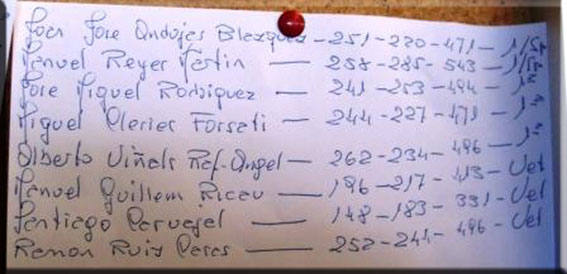 Joan Jose Andujes Blazquez - 251 - 220 - 471 - 1/Sp
Manuel Reyer Festin — 258 - 285 - 543 - 1/Sp
Jose Miguel Rodriguez — 241 - 253 - 494 - 1ª
Miguel Forsati — 244 - 227 - 471 - 1ª
Alberto Viñals Ref-Angel — 262 - 234 - 496 - 1ª
Manuel Guillem Ricau — 196 - 217 - 413 - Vet
Santiago — 148 - 183 - 331 - Vet
Ramon Ruiz Peres — 252 - 244 - 496 - Vet